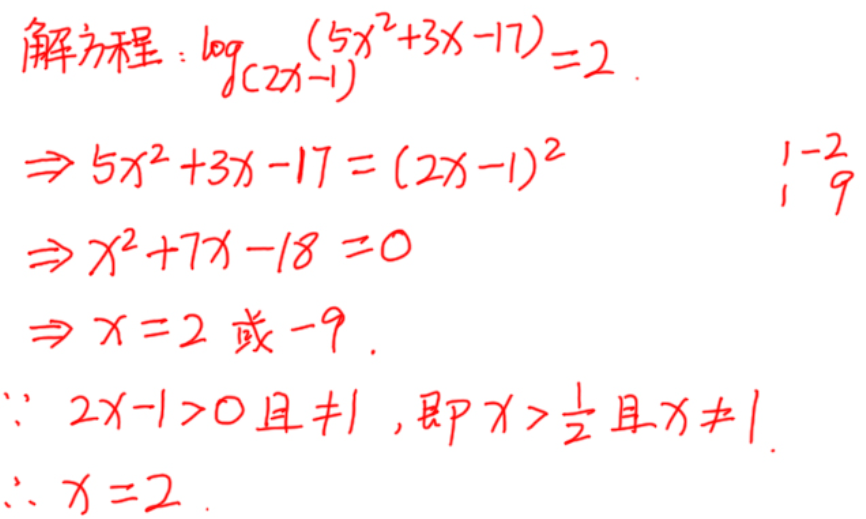 解方程：log_(2x-1) (5x²+3x-17) = 2.
⇒ 5x²+3x-17 = (2x-1)²
1 -2
1 9
⇒ x²+7x-18 = 0
⇒ x = 2 或 -9.
∵ 2x-1 > 0 且 ≠ 1，即 x > 1/2 且 x ≠ 1.
∴ x = 2.